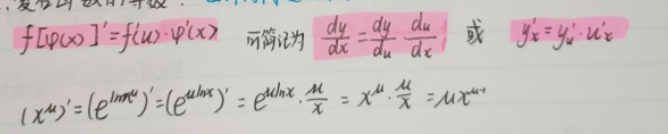 f[φ(x)]'=f'(u)·φ'(x) 可简记为 dy/dx=dy/du·du/dx 或 y'x=y'u·u'x
(x^μ)'=(e^lnx^μ)'=(e^μlnx)'=e^μlnx·μ/x=x^μ·μ/x=μx^μ-1